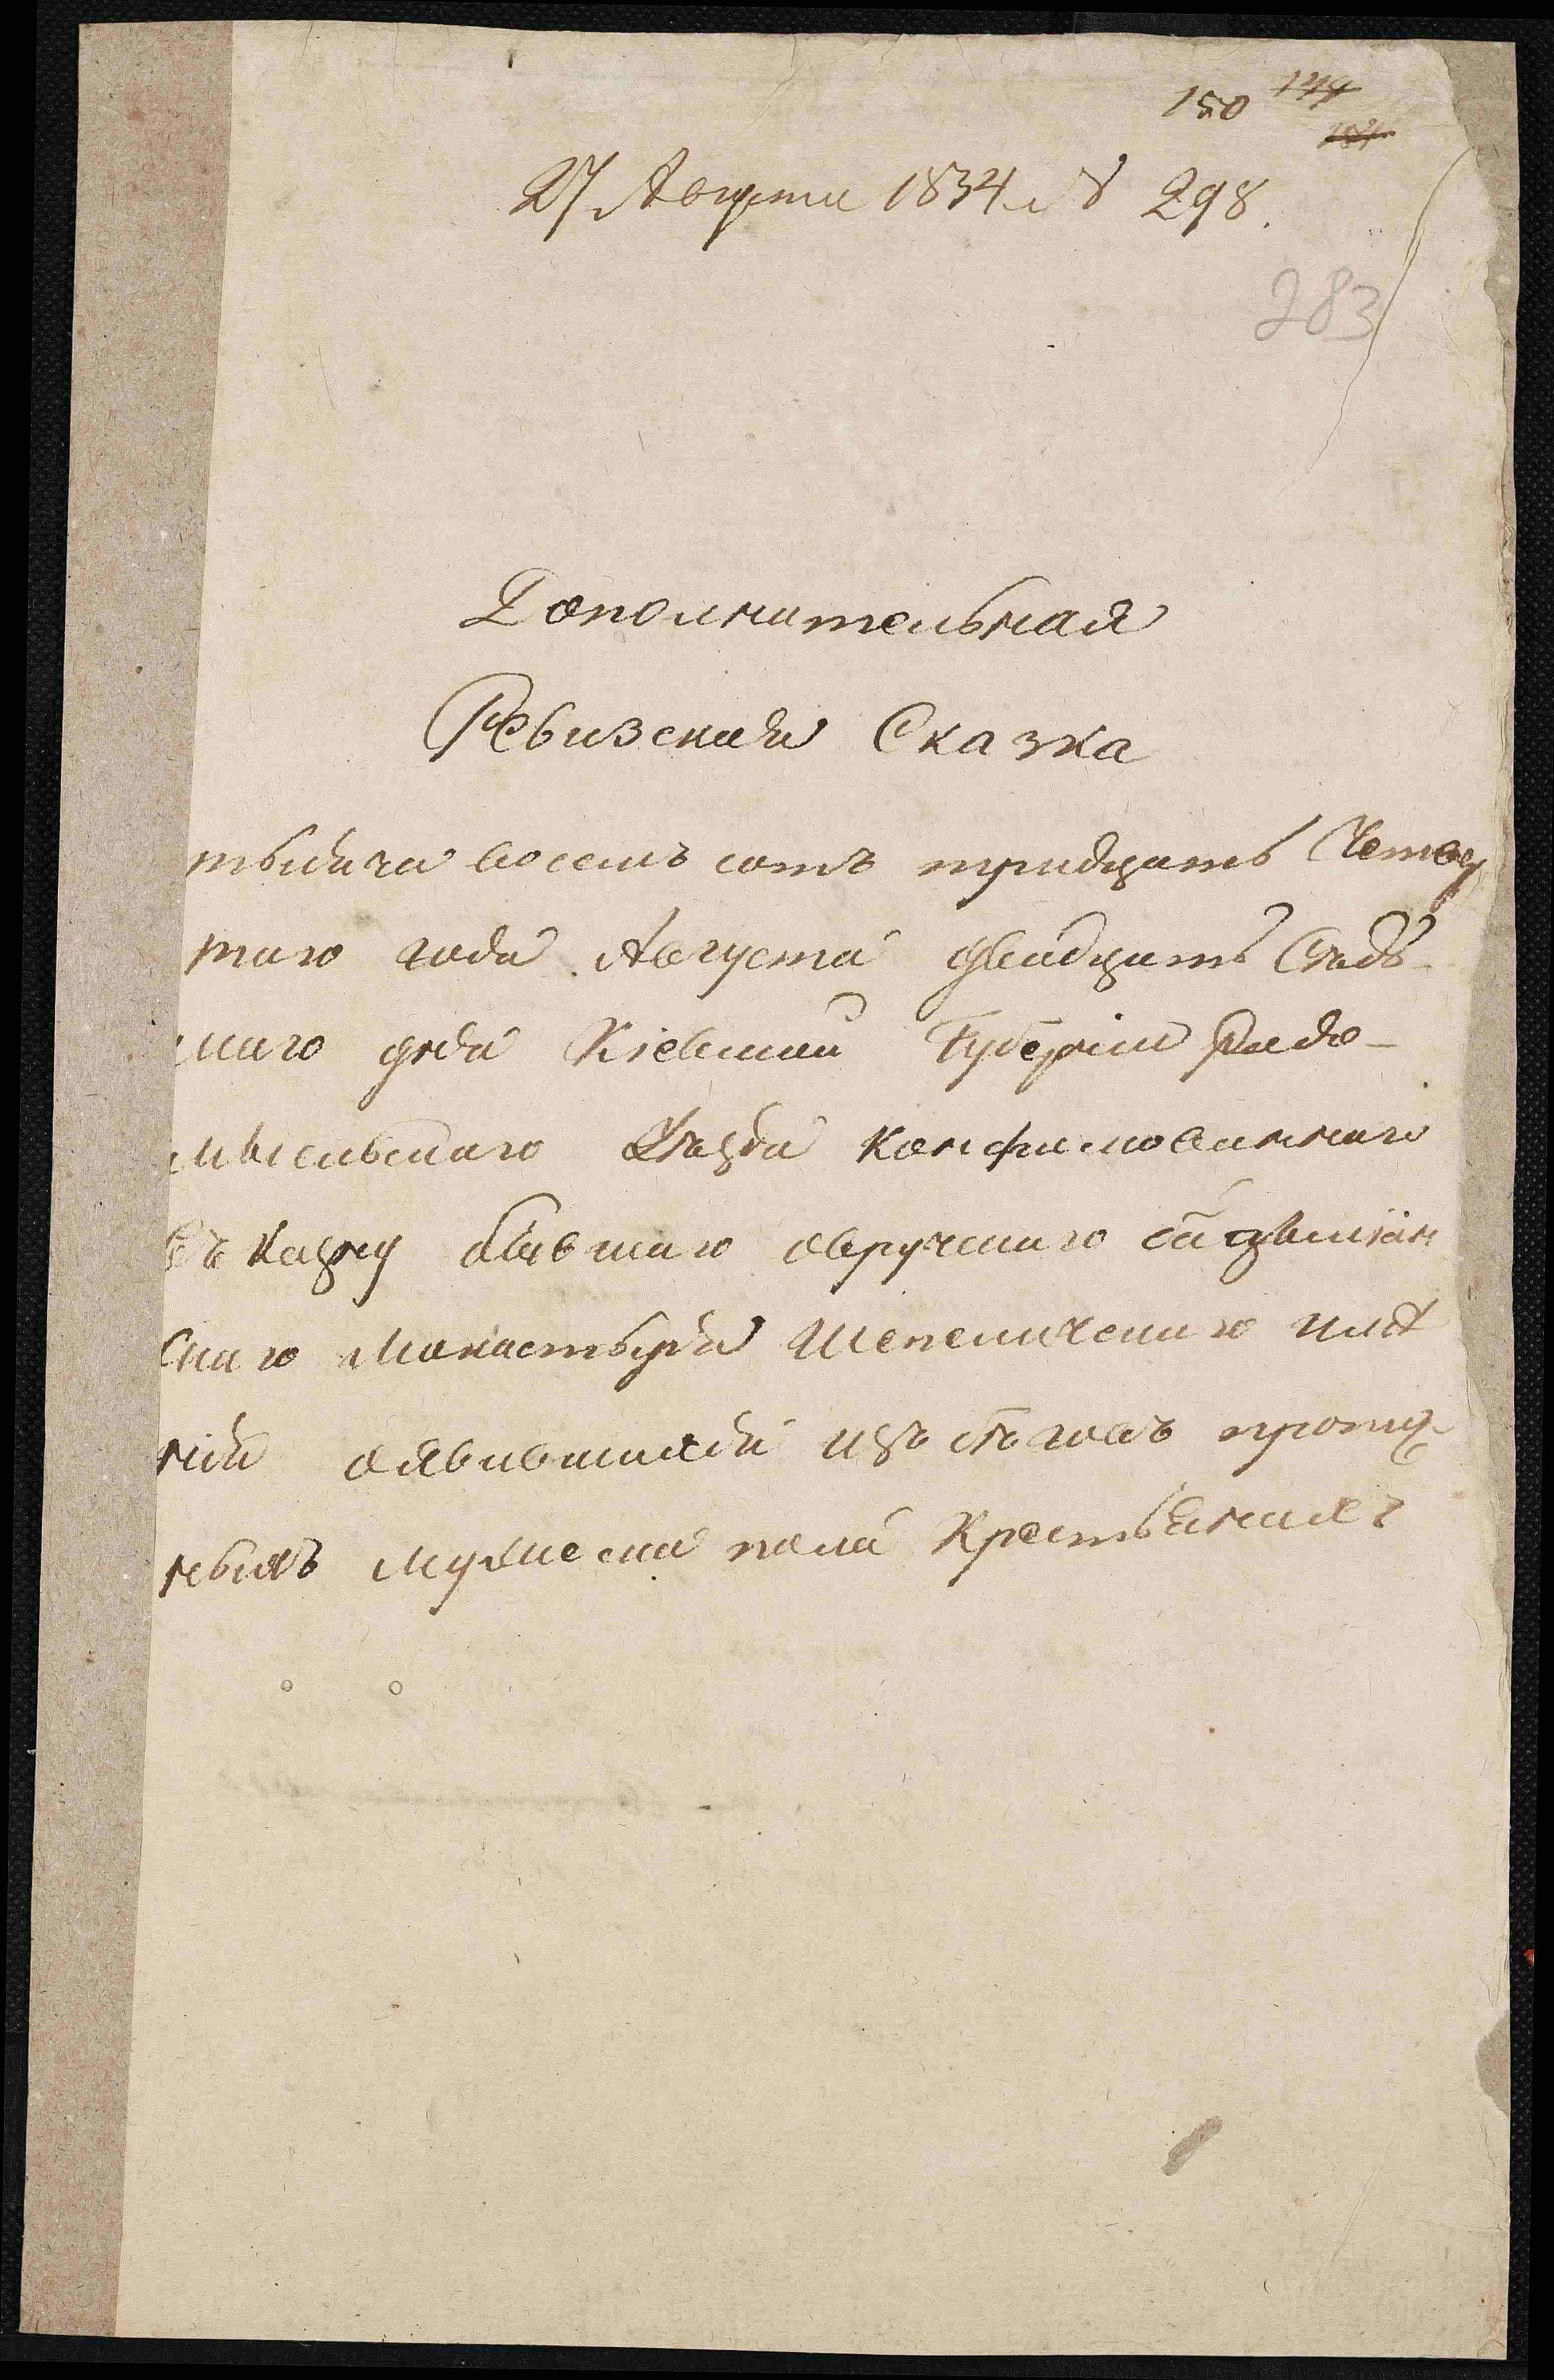 150 149
27 Августа 1834 № 298.
283
Дополнительная
Ревизская Сказка
тысяча восемъ сотъ тридцать Четвер
таго года Августа двадцать Седь-
маго дня Кіевской Губерніи Радо-
мысльскаго Уезда Конфискованнаго
въ Казну бывшаго овручскаго базыліан
Скаго Монастыря Шепелическаго имѣ
нія оявившихся изъ бѣговъ пропуще
ныхъ мужеска пола Крестьянахъ